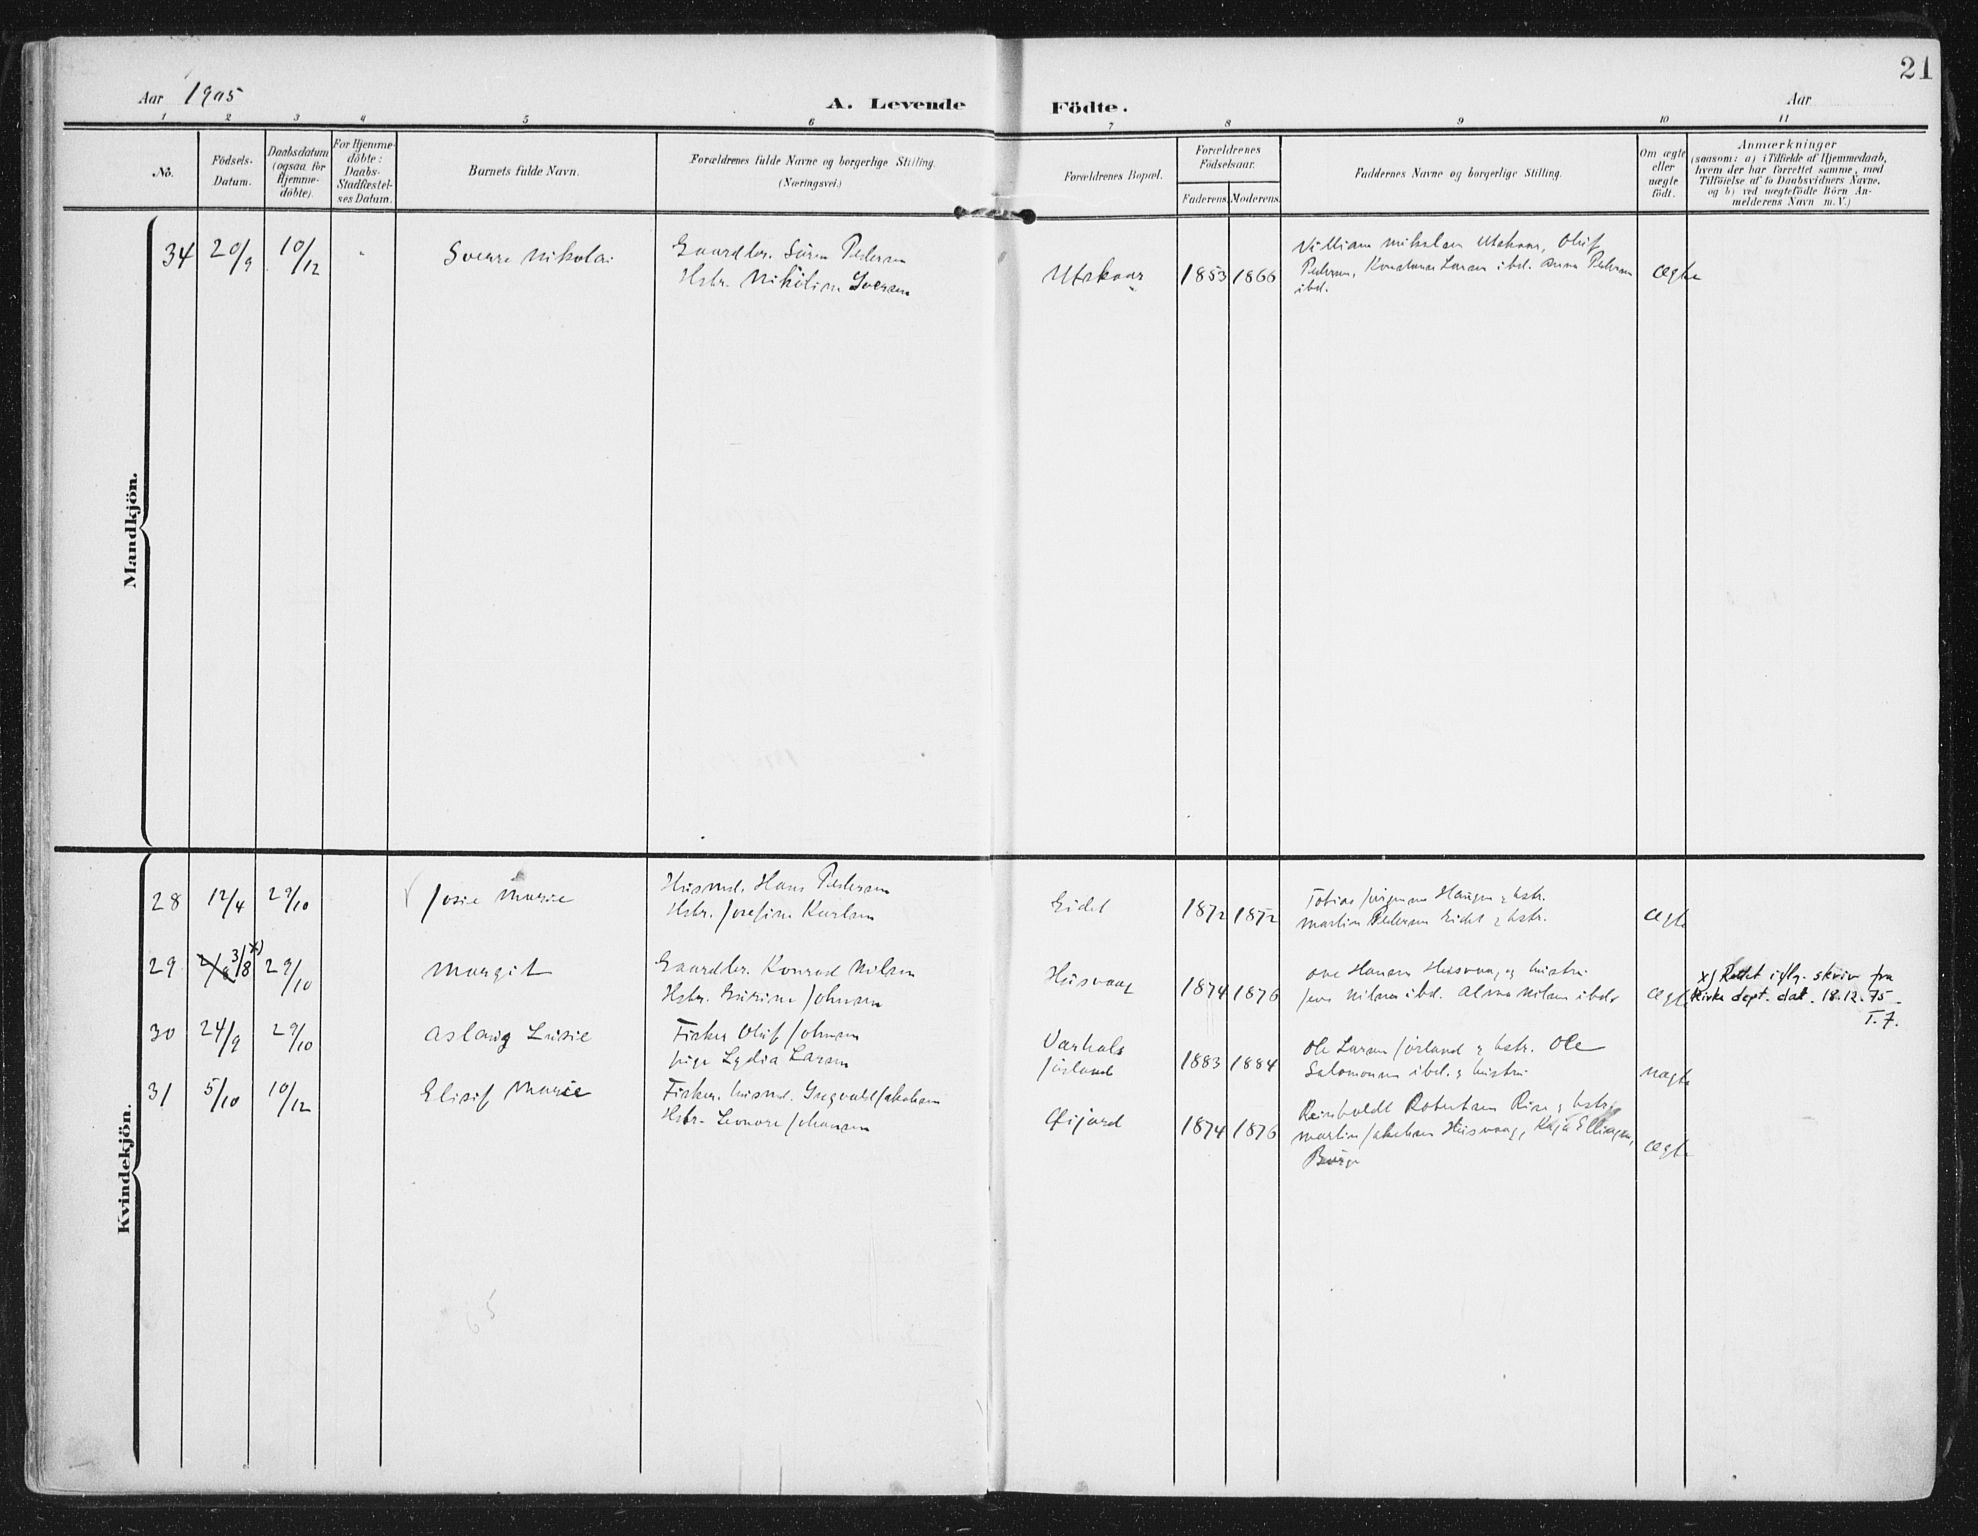 21
Aar 1905
A. Levende Födte.
Aar
1 2 3 4 5 6 7 8 9 10 11
No.
Födsels-
Datum.
Daabsdatum
(ogsaa for
Hjemme-
döbte).
For Hjemme-
döbte:
Daabs-
Stadfæstel-
ses Datum.
Barnets fulde Navn.
Forældrenes fulde Navne og borgerlige Stilling.
(Næringsvei.)
Forældrenes Bopæl.
Forældrenes
Födselsaar.
Faderens. Moderens.
Faddernes Navne og borgerlige Stilling.
Om ægte
eller
uægte
födt.
Anmærkninger
(saasom: a) i Tilfælde af Hjemmedaab,
hvem der har forrettet samme, med
Tilföielse af to Daabsvidners Navne,
og b) ved uægtefödte Börn An-
melderens Navn m. V.)
Mandkjön.
34 20/9 10/12 Sverre Nikolai
Gaardbr. Sören Pedersen
Hstr. Nikoline Iversen
Utskaar 1853 1866
Villiam Nikolaisen Utskaar, Oluf
Pedersen, Konstanse Larsen ibd. Anna Pedersen
ibd.
ægte
Kvindekjön.
28 12/4 29/10 Josie Marie
Husmd. Hans Pedersen
Hstr. Josefine Karlsen
Eidet 1872 1872
Tobias Jörgensen Haugen & hstr.
Martin Pedersen Eidet & hstr.
ægte
29 3/8 x) 29/10 Margit
Gaardbr. Konrad Nilsen
Hstr. Gurine Johnsen
Husvaag 1874 1876
Ove Hansen Husvaag og hustru
Jens Nilsen ibd. Alma Nilsen ibd.
ægte
x) Rettet iflg. skriv fra
Kirke dept. dat. 18.12.75.
T.J.
30 24/9 29/10 Aslaug Lusie
Fisker Oluf Johnsen
pige Lydia Larsen
Valhals
Jörland
1883 1884
Ole Larsen Jörland & hstr. Ole
Salomonsen ibd. & hustru
uægte
31 5/10 10/12 Elisif Marie
Fisker, husmd. Ingvald Jakobsen
Hstr. Leonore Johansen
Öijord 1874 1876
Reinholdt Robertsen Risø & hstr.
Martin Jakobsen Husvaag, Kaja Ellingsen,
Borge
ægte